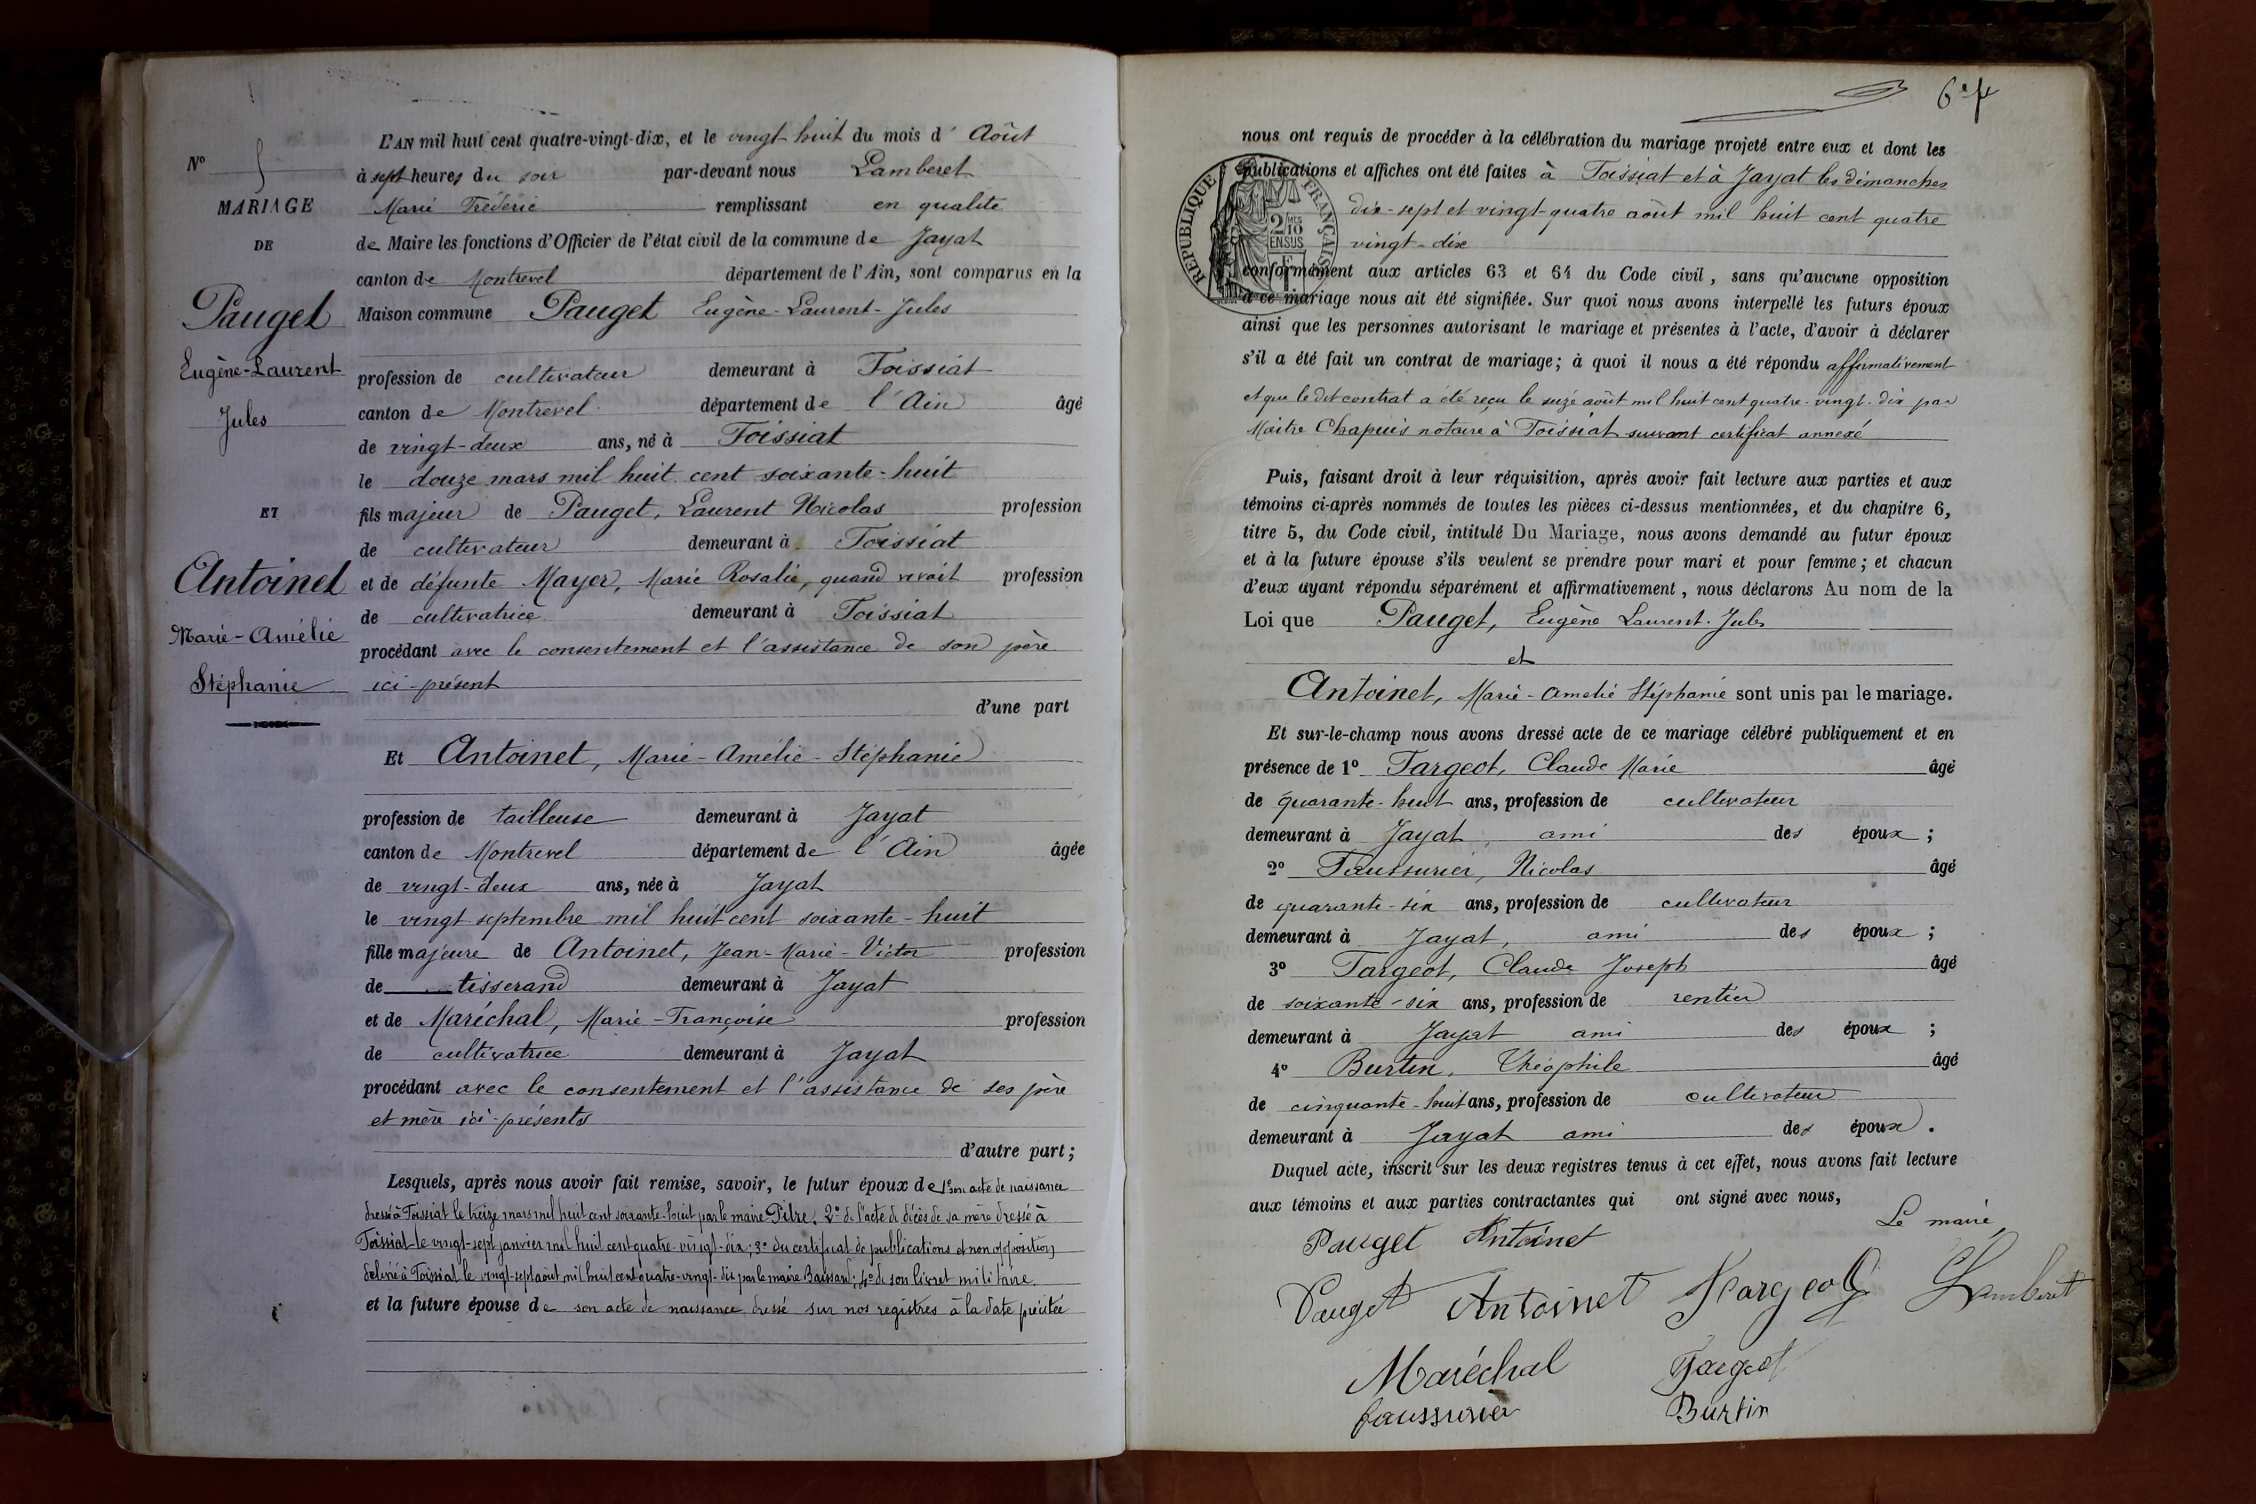 N° 5
MARIAGE
DE
Pauget
Eugène-Laurent
Jules
ET
Antoinet
Marie-Amélie
Stéphanie
L'AN mil huit cent quatre-vingt-dix, et le vingt huit du mois d' Août
à sept heures du soir par-devant nous Lamberet
Marie Frédéric remplissant en qualité
de Maire les fonctions d'Officier de l'état civil de la commune de Jayat
canton de Montrevel département de l'Ain, sont comparus en la
Maison commune Pauget Eugène-Laurent-Jules
profession de cultivateur demeurant à Foissiat
canton de Montrevel département de l'Ain âgé
de vingt-deux ans, né à Foissiat
le douze mars mil huit cent soixante-huit
fils majeur de Pauget, Laurent Nicolas profession
de cultivateur demeurant à Foissiat
et de défunte Mayer, Marie Rosalie, quand vivait profession
de cultivatrice demeurant à Foissiat
procédant avec le consentement et l'assistance de son père
ici-présent
d'une part
Et Antoinet, Marie-Amélie-Stéphanie
profession de tailleuse demeurant à Jayat
canton de Montrevel département de l'Ain âgée
de vingt-deux ans, née à Jayat
le vingt septembre mil huit cent soixante-huit
fille majeure de Antoinet, Jean-Marie-Victor profession
de tisserand demeurant à Jayat
et de Maréchal, Marie-Françoise profession
de cultivatrice demeurant à Jayat
procédant avec le consentement et l'assistance de ses père
et mère ici-présents
d'autre part;
Lesquels, après nous avoir fait remise, savoir, le futur époux de 1° son acte de naissance
dressé à Foissiat le treize mars mil huit cent soixante-huit par le maire Pitre; 2° de l'acte de décès de sa mère dressé à
Foissiat le vingt-sept janvier mil huit cent quatre-vingt-dix; 3° du certificat de publications et non opposition
délivré à Foissiat le vingt-sept août mil huit cent quatre-vingt-dix par le maire Baissard; 4° de son livret militaire
et la future épouse de son acte de naissance dressé sur nos registres à la date précitée
6e f
nous ont requis de procéder à la célébration du mariage projeté entre eux et dont les
publications et affiches ont été faites à Foissiat et à Jayat les dimanches
dix-sept et vingt-quatre août mil huit cent quatre
vingt-dix
RÉPUBLIQUE FRANÇAISE
2 MES 10 EN SUS
conformément aux articles 63 et 64 du Code civil, sans qu'aucune opposition
à ce mariage nous ait été signifiée. Sur quoi nous avons interpellé les futurs époux
ainsi que les personnes autorisant le mariage et présentes à l'acte, d'avoir à déclarer
s'il a été fait un contrat de mariage; à quoi il nous a été répondu affirmativement
et que le dit contrat a été reçu le seize août mil huit cent quatre-vingt-dix par
Maître Chapuis notaire à Foissiat suivant certificat annexé
Puis, faisant droit à leur réquisition, après avoir fait lecture aux parties et aux
témoins ci-après nommés de toutes les pièces ci-dessus mentionnées, et du chapitre 6,
titre 5, du Code civil, intitulé Du Mariage, nous avons demandé au futur époux
et à la future épouse s'ils veulent se prendre pour mari et pour femme; et chacun
d'eux ayant répondu séparément et affirmativement, nous déclarons Au nom de la
Loi que Pauget, Eugène Laurent-Jules
et
Antoinet, Marie-Amelie Stéphanie sont unis par le mariage.
Et sur-le-champ nous avons dressé acte de ce mariage célébré publiquement et en
présence de 1° Fargeot, Claude Marie âgé
de quarante-huit ans, profession de cultivateur
demeurant à Jayat, ami des époux;
2° Faussurier, Nicolas âgé
de quarante-six ans, profession de cultivateur
demeurant à Jayat, ami des époux;
3° Fargeot, Claude Joseph âgé
de soixante-six ans, profession de rentier
demeurant à Jayat ami des époux;
4° Burtin, Théophile âgé
de cinquante-huit ans, profession de cultivateur
demeurant à Jayat ami des époux.
Duquel acte, inscrit sur les deux registres tenus à cet effet, nous avons fait lecture
aux témoins et aux parties contractantes qui ont signé avec nous,
Le maire,
Pauget Antoinet
Pauget Antoinet Fargeot Lamberet
Maréchal Fargeot
faussurier Burtin